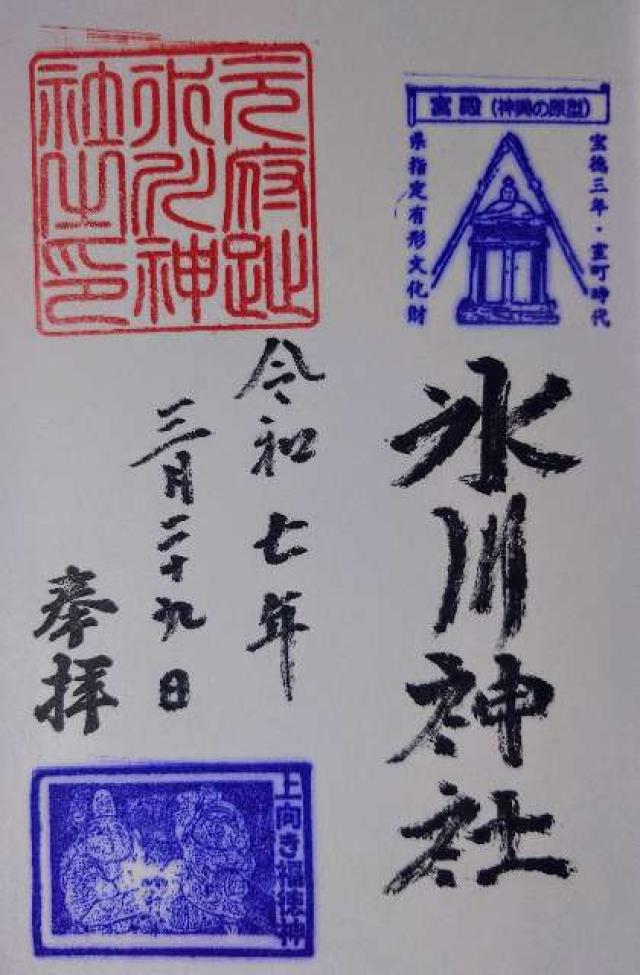 宮殿(神輿の原型)
宝徳三年・室町時代
県指定有形文化財
氷川神社
元府趾
氷川神
社之印
令和七年
三月二十九日
奉拝
上向き福徳神